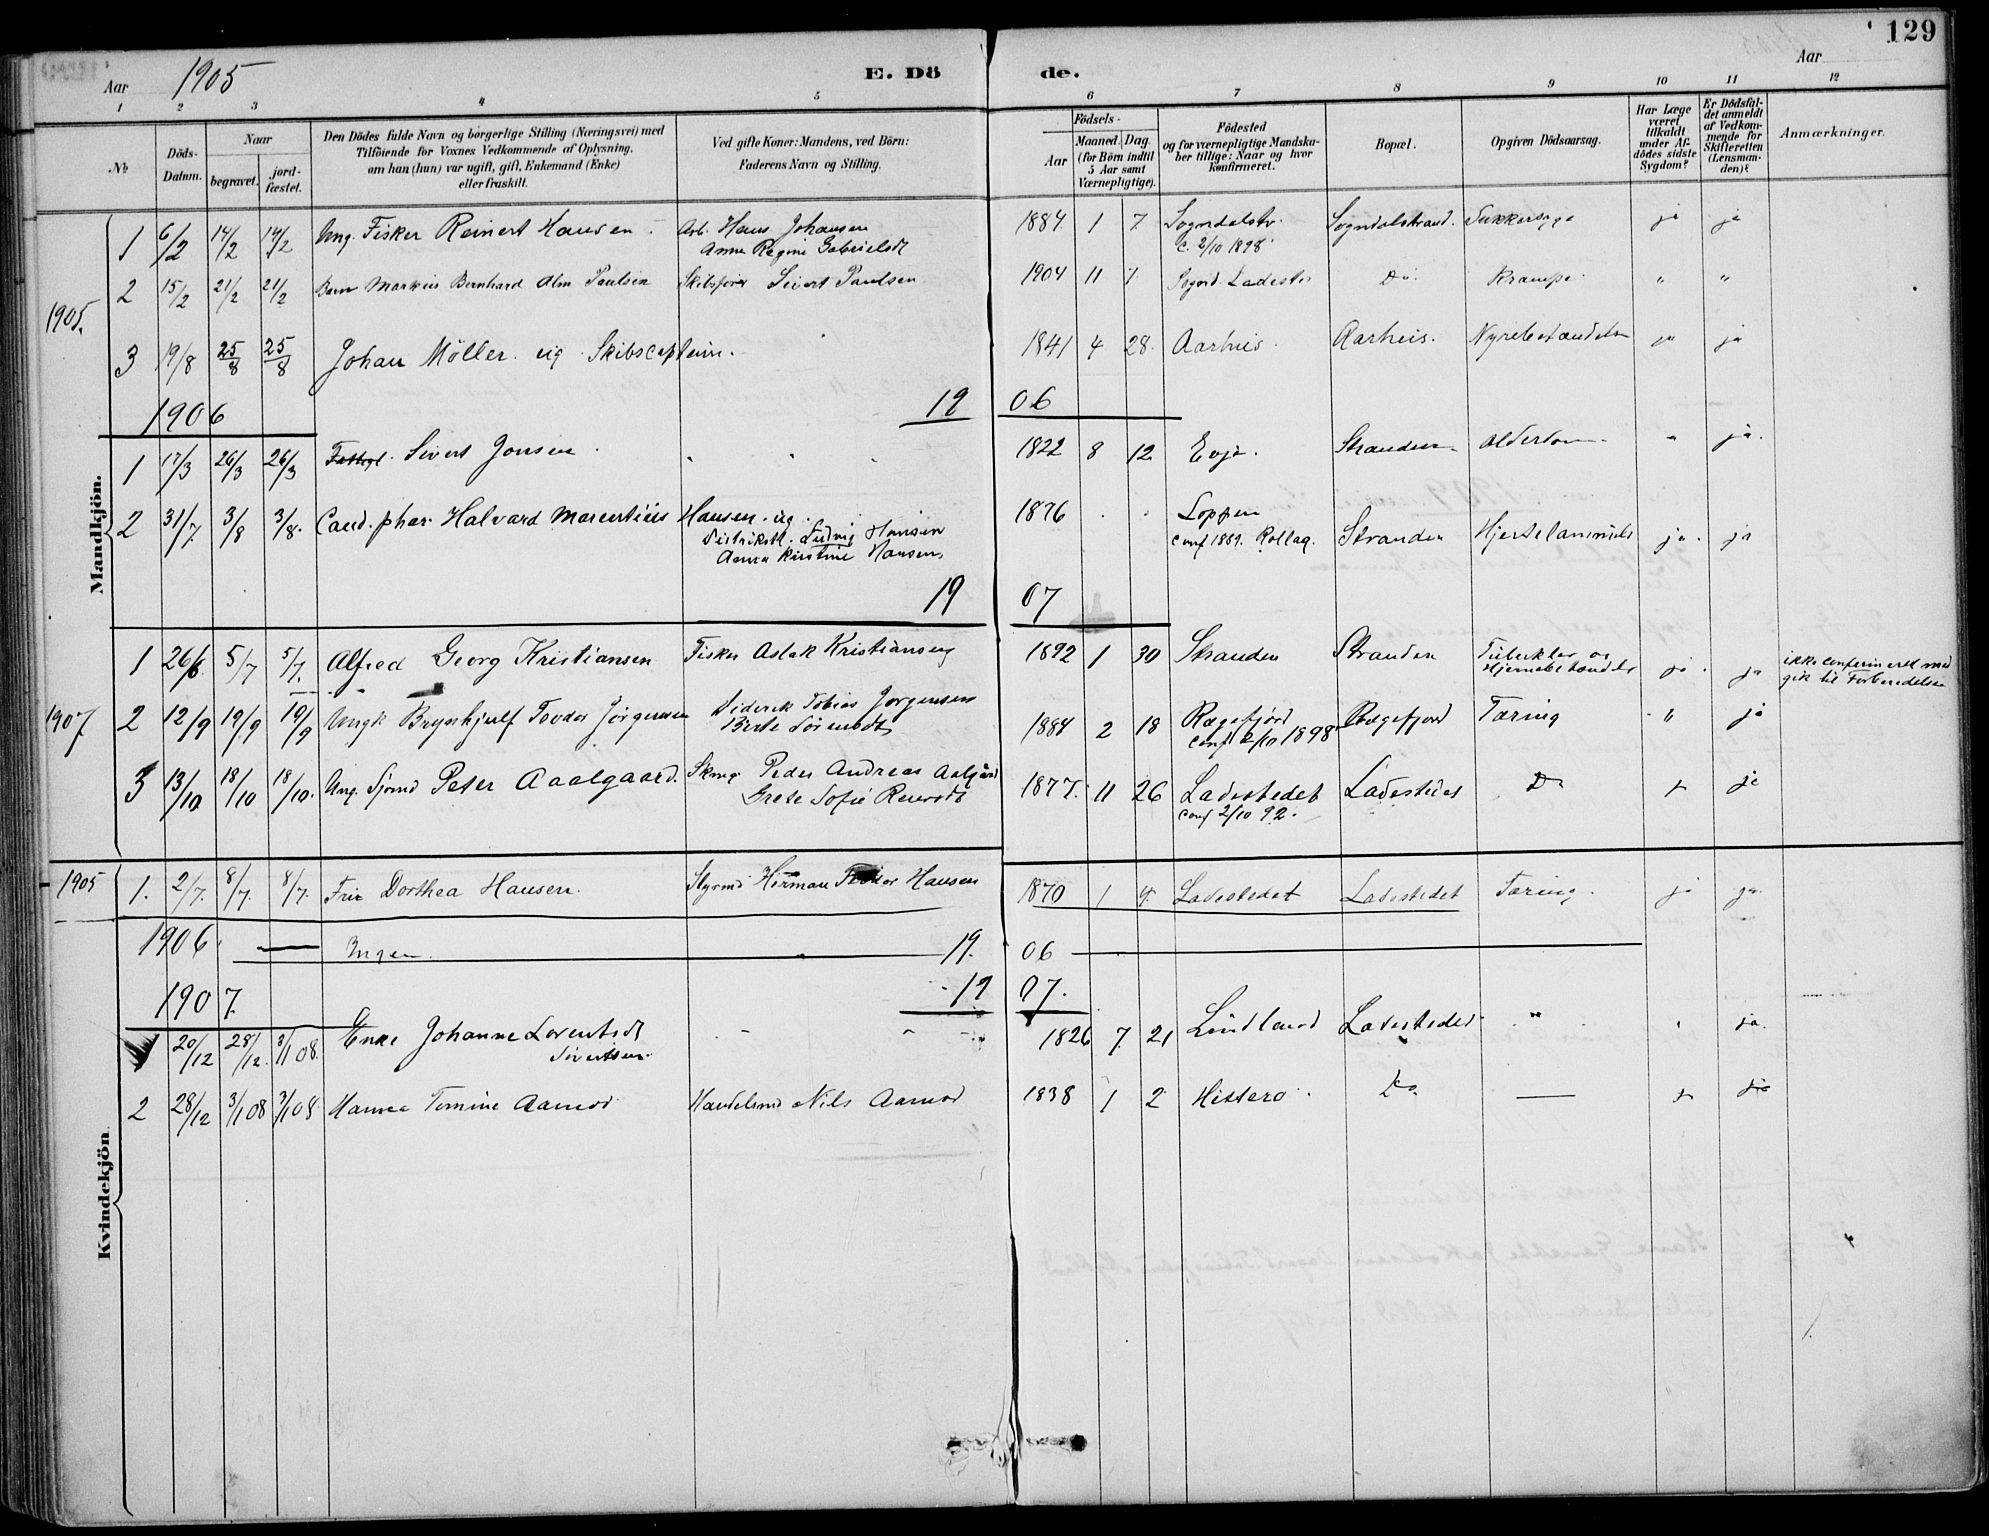 129
Aar 1905
E. Dö
de.
Aar
1 2 3 4 5 6 7 8 9 10 11 12
No
Döds-Datum.
Naar
begravet.
jord-fæstet.
Den Dödes fulde Navn og borgerlige Stilling (Næringsvei) med
Tilföiende for Voxnes Vedkommende af Oplysning,
om han (hun) var ugift, gift, Enkemand (Enke)
eller fraskilt.
Ved gifte Koner: Mandens, ved Börn:
Faderens Navn og Stilling.
Födsels-
Aar
Maaned. Dag.
(for Börn indtil
5 Aar samt
Værnepligtige).
Födested
og for værnepligtige Mandska-
ber tillige: Naar og hvor
konfirmeret.
Bopæl.
Opgiven Dödsaarsag.
Har Læge
været
tilkaldt
under Af-
dødes sidste
Sygdom?
Er Dödsfal-
det anmeldt
af Vedkom-
mende for
Skifteretten
(Lensman-
den)?
Anmærkninger.
Mandkjön.
1905.
1 6/2 14/2 14/2 Ung. Fisker Reinert Hansen Arb. Hans Johansen 1884 1 7 Sogndalstr. Sogndalstrand. Sukkersyge ja ja
Anne Regine Gabrielsdt c. 2/10 1898
2 15/2 21/2 21/2 Barn Markus Bernhard Alm Paulsen Skibsfører Sivert Paulsen 1904 11 7 Sognd. Ladested Do. Krampe " "
3 19/8 25/8 25/8 Johan Möller. ug. Skibscaptein. 1841 4 28. Aarhus. Aarhus. Nyrebetændelse ja ja
1906 19 06
1 17/3 26/3 26/3 Sivert Jonsen. 1822 8 12 Evje. Stranden Alderdom " ja.
2 31/7. 3/8 3/8. Cand. phar. Halvard Marentius Hansen. ug. 1876 . . Loppen
Distriktsl. Ludvig Hansen conf 1889. Rollag. Stranden Hjertelammelse ja. ja
Anna Kirstine Hansen
19 07
1907
1 26/6 5/7 5/7. Alfred Georg Kristiansen Fisker Aslak Kristiansen 1892 1 30 Stranden Stranden Tuberkler og Hjernebetændelse ja. ja ikke confirmeret med
gik til Forberedelse
2 12/9 19/9 19/9 Ungk Brynhjulf Tovdor Jörgensen Diderik Tobias Jörgensen 1884 2 18 Rægefjord Rægefjord Tæring " ja
Berte Sörensdt conf 2/10 1898
3 13/10 18/10 18/10. Ung. Sjømd Peter Aaalgaard. Peder Andreas Aalgård 1877. 11 26 Ladestedet Ladestedet Do ja
Grete Sofie conf 2/10 92.
Kvindekjön.
1905 1. 2/7. 8/7. 8/7. Frue Dorthea Hansen. Styrmd Herman Hansen 1870 1 4. Ladestedet Ladestedet Tæring. ja ja.
1906 — Ingen. 19. 06
1907. 19 07.
1 20/12 28/12. 3/1 08. Enke Johanne Lorentsdt 1826 7. 21 Lindland Ladestedet " ja.
Sivertsen.
2 28/12 3/1 08 3/1 08. Hanna Tomine Aamod Handelsmd Nils Aamod 1838 1 2 Hitterø. Do — ja